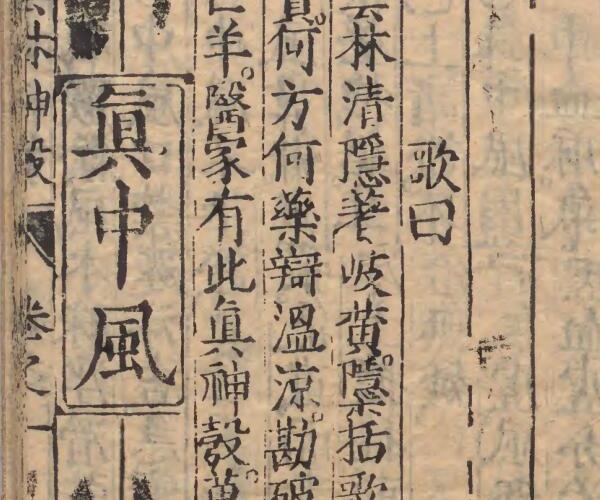 歌曰
雲林清隱著岐黃。隱括歌
何方何藥辯溫涼。勘破
羊。醫家有此眞神彀。萬
眞中風
林神彀
卷之一